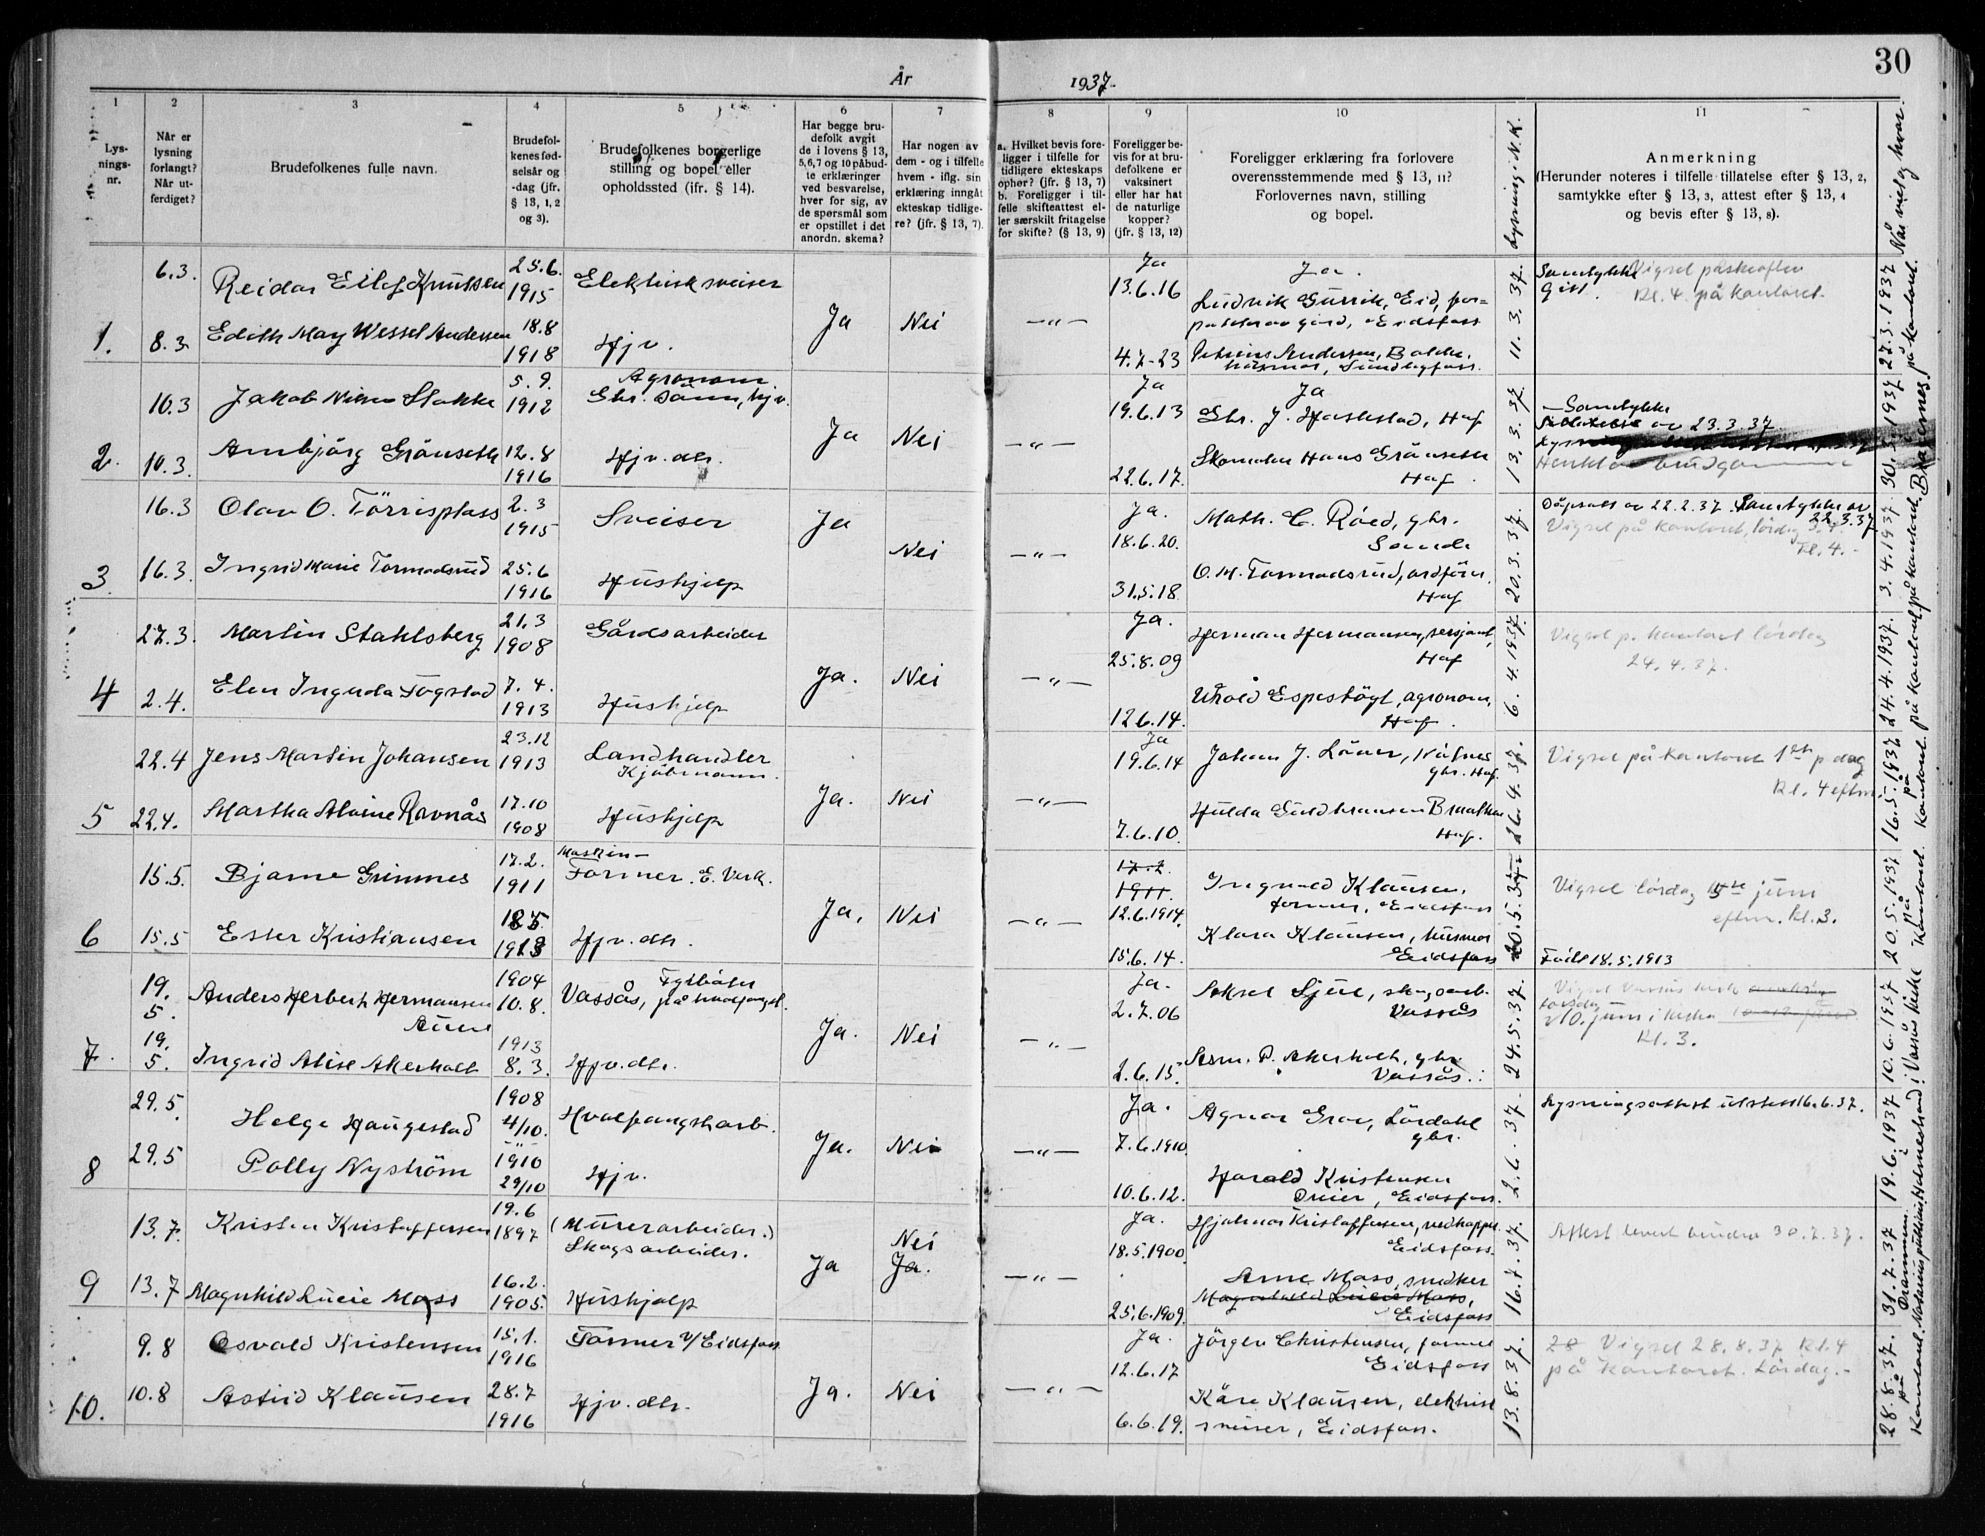 30
År
1937.
1
2
3
4
5
6
7
8
9
10
11
Lys-
nings-
nr.
Når er
lysning
forlangt?
Når ut-
ferdiget?
Brudefolkenes fulle navn.
Brudefol-
kenes fød-
selsår og
-dag (jfr.
§ 13, 1, 2
og 3).
Brudefolkenes borgerlige
stilling og bopel eller
opholdssted (ifr. § 14).
Har begge bru-
defolk avgit
de i lovens § 13,
5, 6, 7 og 10 påbud-
te erklæringer
ved besvarelse,
hver for sig, av
de spørsmål som
er opstillet i det
anordn. skema?
Har nogen av
dem - og i tilfelle
hvem - iflg. sin
erklæring inngått
ekteskap tidlige-
re? (jfr. § 13, 7).
a. Hvilket bevis fore-
ligger i tilfelle for
tidligere ekteskaps
ophør? (jfr. § 13, 7)
b. Foreligger i til-
felle skifteattest el-
ler særskilt fritagelse
for skifte? (§ 13, 9)
Foreligger be-
vis for at bru-
defolkene er
vaksinert
eller har hat
de naturlige
kopper?
(jfr. § 13, 12)
Foreligger erklæring fra forlovere
overensstemmende med § 13, 11?
Forlovernes navn, stilling
og bopel.
Lysning i N.K.
Anmerkning
(Herunder noteres i tilfelle tillatelse efter § 13, 2,
samtykke efter § 13, 3, attest efter § 13, 4
og bevis efter § 13, 8).
Når viet og hvor.
1.
6.3.
Reidar Eilef Knutsen
25.6.
1915
Elektrisk sveiser
8.3
Edith May Wessel Andersen
18.8
1918
Hjv.
Ja
Nei
— " —
Ja
13.6.16
4.7-23
Ja.
Ludvik Gurrik, Eid, for-
Eidsfoss
Andersen,
11.3.37.
Samtykke
Gitt.
Vigsel påskeaften
Kl. 4. på kontoret.
27.3.1937
på kontoret.
2.
10.3
Jakob Stokke
5.9.
1912
Agronom
Gbr. sønn, hjv.
10.3.
Arnbjørg Grønseth
12.8
1916
Hjv. dtr.
Ja
Nei
— " —
Ja
19.6.13
22.6.17.
Ja
Gbr. J. Hof
Skomaker Hans Grønseth
Hof.
13.3.37.
Samtykke
av 23.3.37.
30.5.1937
3
16.3
Olav O. Tørrisplass
2.3
1915
Sveiser
16.3.
Ingrid Marie Tormodsrud
25.6
1916
Hushjelp
Ja
Nei
— " —
Ja.
18.6.20.
31.5.18.
Math. C. Røed, gbr.
Sande
O. M. Tormodsrud, ordfører.
Hof
20.3.37.
Dåpsatt av 22.2.37. Samtykke av
22.3.37
Vigsel på kontoret, lørdag
Kl. 4.-
3.4.1937.
på kontoret.
4
27.3.
Martin Stahlsberg
21.3
1908
Gårdsarbeider
2.4.
Elen Inguda Fogstad
7.4.
1913
Hushjelp
Ja.
Nei
— " —
Ja.
25.8.09
12.6.14.
Herman Hermansen, sersjant,
Hof
Espestøyl, agronom,
Hof.
6.4.1937.
Vigsel p. kontoret lørdag
24.4.37.
24.4.1937.
på kontoret.
5
22.4
Jens Martin Johansen
23.12
1913
Landhandler
Kjøbmann.
22.4.
Martha Alvine Ravnås
17.10
1908
Hushjelp
Ja.
Nei
— " —
Ja
19.6.14
7.6.10.
Johan J. Løver,
gbr. Hof.
Hulda Guldbransen
Hof.
26.4.37.
Vigsel på kontoret 1ste p dag
Kl. 4 eftm.
16.5.1937
på
kontoret.
6
15.5.
Bjarne Grimnes
17.2.
1911
Maskin-
Former. E. Verk.
15.5
Ester Kristiansen
18.5
1913
Hjv. dtr.
Ja.
Nei
— " —
17.2.
1911.
12.6.1914.
15.6.14.
Ingvald Klausen,
former, Eidsfoss
Klara Klausen, husmor
Eidsfoss
20.5.37
Vigsel lørdag juni
eftm. Kl. 3.
Født 18.5.1913
20.5.1937
på
kontoret.
7.
19.
5.
Anders Herbert Hermansen
Auen
1904
10.8.
Fyrbøter
Vassås, på hvalfangst.
19.
5.
Ingrid Alise Akerholt
1913
8.3.
Hjv. dtr.
Ja.
Nei
— " —
Ja.
2.7.06
2.6.15.
Aksel Sjue, skogsarb.
Vassås
Asm. P. Akerholt, gbr.
Vassås.
24.5.37.
Vigsel Vassås kirke
torsdag
10. juni i kirken
Kl. 3.
10.6.1937
i Vassås kirke
8
29.5.
Helge Haugestad
1908
4/10.
Hvalfangstarb.
29.5
Polly Nyström
1910
29/10
Hjv.
Ja.
Nei
— " —
Ja.
7.6.1910.
10.6.12.
Agnar Grav, Lørdahl
gbr.
Harald Kristensen
Dreier, Eidsfoss.
2.6.37.
Lysningsattest utstett 16.6.37.
19.6.1937
9
13.7.
Kristen Kristoffersen
19.6
1897
(Murerarbeider.)
Skogsarbeider.
13.7
Magnhild Lucie Moss
16.2.
1905.
Hushjelp
Ja
Nei
Ja.
— " —
Ja.
18.5.1900
25.6.1909.
Hjalmar Kristoffersen, vedhugger
Eidsfoss.
Arne Moss, snedker
Magnhild Lucie Moss,
Eidsfoss
16.7.37.
Attest levert 30.7.37.
31.7.37
Drammen.
10.
9.8
Osvald Kristensen
15.1.
1916
Former v/ Eidsfoss
10.8
Astrid Klausen
28.7
1916
Hjv. dtr.
Ja.
Nei
— " —
Ja.
12.6.17
6.6.19.
Jørgen Christensen, former
Eidsfoss
Kåre Klausen, elektrisk
sveiser, Eidsfoss.
13.8.37.
28 Vigsel 28.8.37 Kl. 4
på kontoret. Lørdag.-
28.8.37.
på
kontoret.